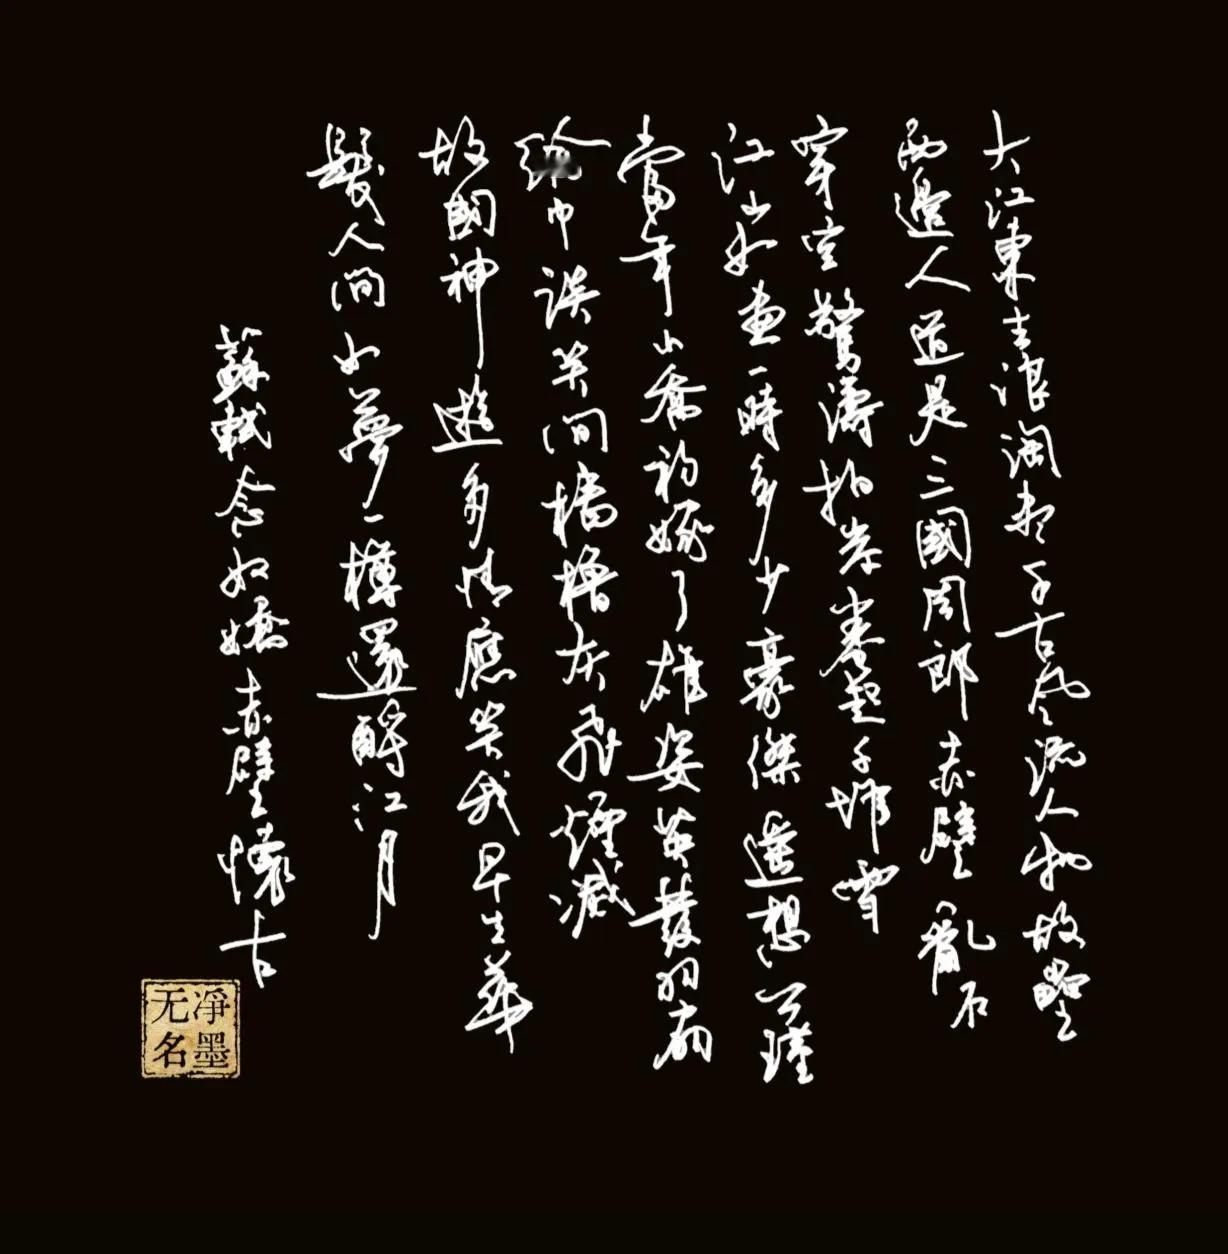 大江東去浪淘盡千古風流人物故壘
西邊人道是三國周郎赤壁亂石
穿空驚濤拍岸卷起千堆雪
江山如畫一時多少豪傑遙想公瑾
當年小喬初嫁了雄姿英發羽扇
綸巾談笑間檣櫓灰飛煙滅
故國神遊多情應笑我早生華
髮人間如夢一樽還酹江月
蘇軾念奴嬌赤壁懷古
凈墨
无名